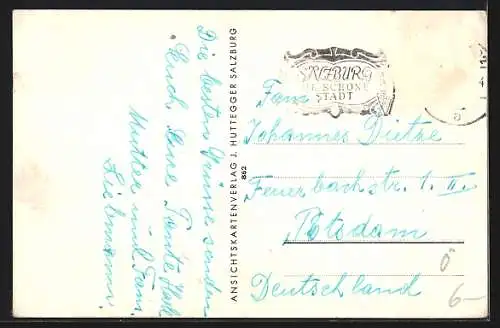 Die besten Grüsse senden
Euch Eure Tante Hall
Mutter und Fam.
Liebmann
ANSICHTSKARTENVERLAG J. HUTTEGGER SALZBURG
862
SALZBURG
DIE SCHÖNE
STADT
Fam.
Johannes Dietze
Feuerbachstr. 1. II.
Potsdam
Deutschland
6-